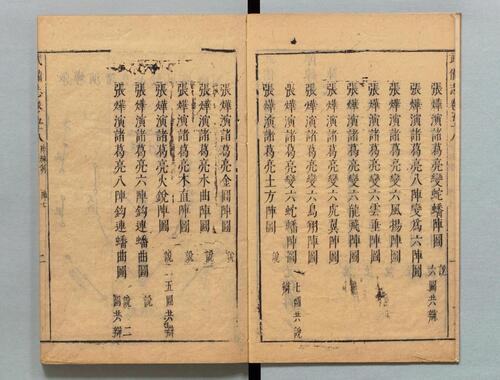 張燁演諸葛亮變蛇蟠陣圖 說 六圖共辯
張燁演諸葛亮八陣變爲六陣圖
張燁演諸葛亮變六風揚陣圖
張燁演諸葛亮變六雲垂陣圖
張燁演諸葛亮變六龍飛陣圖
張燁演諸葛亮變六虎翼陣圖
張燁演諸葛亮變六鳥翔陣圖
張燁演諸葛亮變六蛇蟠陣圖 七圖共說 辯
張燁演諸葛亮土方陣圖 說
張燁演諸葛亮金圓陣圖 說
張燁演諸葛亮水曲陣圖 說
張燁演諸葛亮木直陣圖 說
張燁演諸葛亮火銳陣圖 說 五圖共辯
張燁演諸葛亮六陣鉤連蟠曲圖 說
張燁演諸葛亮八陣鉤連蟠曲圖 說 二圖共辯